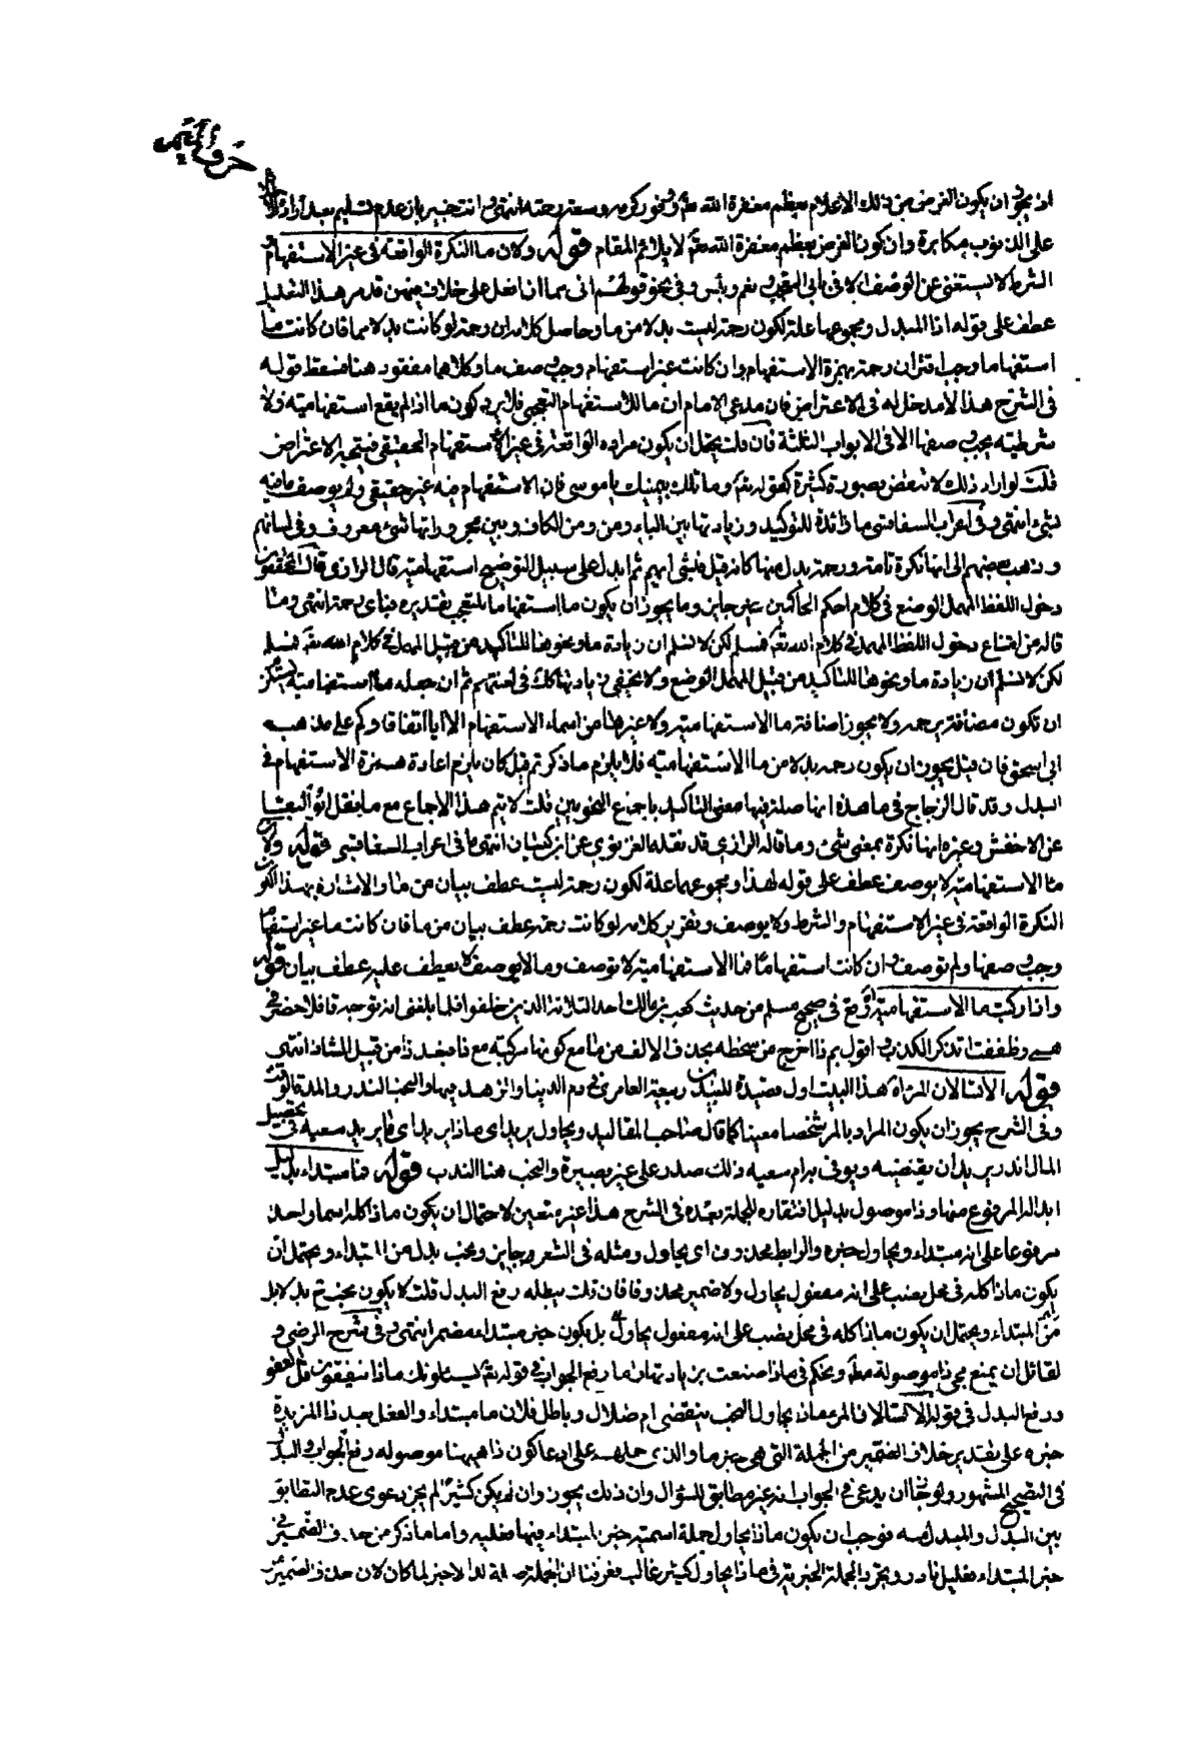 حرف الميم
اذ يجوز ان يكون الغرض من ذلك الاعلام بعظم مغفرة الله تعم ووفور كرمه وسعة رحمته انتهى وانت خبير بان عدم تسليم بعد
على الذنوب مكابرة وان كون الغرض بعظم مغفرة الله تعم لا يلائم المقام قوله ولان ما النكرة الواقعة في غير الاستفهام
الشرط لا تستغني عن الوصف الا في بابي التعجب ونعم وبئس وفي نحو قولهم اني مما ان افعل على خلاف فيهن قد مر هذا التعليل
عطف على قوله اذ المبدل ومجموعها علة لكون رحمة ليست بدلا من ما وحاصل كلامه ان رحمة لو كانت بدلا من ما فان كانت ما
استفهاما وجب اقتران رحمة بهمزة الاستفهام وان كانت غير استفهام وجب وصف ما وكلاهما مفقود هنا فسقط قوله
في الشرح هذا لا مدخل له في الاعتراض فان مدعى الامام ان ما للاستفهام التعجبي فلا يرد كون ما اذا لم يقع استفهامية ولا
شرطية يجب وصفها الا في الابواب الثلثة فان قلت يحتمل ان يكون مراده الواقعة في غير الاستفهام الحقيقي فيتجه الاعتراض
قلت لو اراد ذلك لانتقض بصورة كثيرة كقوله تعم وما تلك بيمينك يا موسى فان الاستفهام فيه غير حقيقي ولم يوصف ما فيه
بشئ انتهى وفي اعراب السفاقسي ما زائدة للتوكيد وزيادتها بين الباء ومن وعن والكاف وبين مجروراتها شئ معروف في لسانهم
وذهب بعضهم الى انها نكرة تامة ورحمة بدل منها كانه قيل فبشئ ابهم ثم ابدل على سبيل التوضيح استفهامية قال الرازي قال المحققون
دخول اللفظ المهمل الوضع في كلام احكم الحاكمين غير جايز وما يجوز ان يكون ما استفهاما للتعجب تقديره فباي رحمة انتهى وما
قاله من امتناع دخول اللفظ المهمل في كلام الله تعم فمسلم لكن لا نسلم ان زيادة ما ونحوها للتاكيد من قبيل المهمل في كلام الله تعم فمسلم
لكن لا نسلم ان زيادة ما ونحوها للتاكيد من قبيل المهمل الوضع ولا يخفى زيادتها كك في لغتهم ثم ان جعله ما استفهامية
ان تكون مضافة برحمة ولا يجوز اضافة ما الاستفهامية ولا غيرها من اسماء الاستفهام الا ايا اتفاقا وكم على مذهب
ابي اسحق فان قيل يجوز ان يكون رحمة بدلا من ما الاستفهامية فلا يلزم ما ذكر ثم قيل كان يلزم اعادة همزة الاستفهام في
البدل وقد قال الزجاج في ما هذه انها صلة فيها معنى التاكيد باجماع النحويين قلت لا يتم هذا الاجماع مع ما ينقل ابو البقا
عن الاخفش وغيره انها نكرة بمعنى شئ وما قاله الرازي قد نقله الغزنوي عن ابن كيسان انتهى ما في اعراب السفاقسي قوله ولان
ما الاستفهامية لا يوصف عطف على قوله لهذا ومجموعهما علة لكون رحمة ليست عطف بيان من ما والاشارة بهذا الكون
النكرة الواقعة في غير الاستفهام والشرط ولا يوصف وتقرير كلامه لو كانت رحمة عطف بيان من ما فان كانت ما غير استفهام
وجب وصفها ولم توصف وان كانت استفهاما فما الاستفهامية لا توصف وما لا يوصف لا يعطف عليه عطف بيان قوله
واذا ركبت ما الاستفهامية وقع في صحيح مسلم من حديث كعب بن مالك احد الثلاثة الذين خلفوا فلما بلغني انه توجه قافلا حضرني
همي وطفقت اتذكر الكذب واقول بم ذا اخرج من سخطه بحذف الالف من ما مع كونها مركبة مع ذا فيعد ذا من قبيل الشاذ انتهى
قوله الا تسالان المرء هذا البيت اول قصيدة للبيد بن ربيعة العامري في ذم الدنيا والزهد فيها والنحب النذر والمدة والوقت
وفي الشرح يجوز ان يكون المراد بالمرء شخصا معينا كما قال صاحب المقاليد ويحاول يريد اي ماذا يريد اي فاي يريد سعيه في تحصيل
المال انذر يريد ان يقضيه ويوفى برام سعيه ذلك صدر على غير بصيرة والنحب هنا النذر قوله فما مبتداء بدليل
ابداله المرفوع منها وذا موصول بدليل افتقاره للجملة بعده في الشرح هذا غير متعين لاحتمال ان يكون ماذا كله اسما واحدا
مرفوعا على انه مبتداء ويحاول خبره والرابط محذوف اي يحاوله ومثله في الشعر جايز ونحب بدل من المبتداء ويحتمل ان
يكون ماذا كله في محل نصب على انه مفعول يحاول ولا ضمير محذوفا فان قلت يبطله رفع البدل قلت لا يكون نحب ثم بدلا
من المبتداء ويحتمل ان يكون ماذا كله في محل نصب على انه مفعول يحاول بل يكون خبر مبتداء مضمر انتهى وفي شرح الرضي و
لقائل ان يمنع مجئ ذا موصولة مطلقا ويحكم في ماذا صنعت بزيادتها اما رفع الجواب في قوله تعم يسئلونك ماذا ينفقون قل العفو
ورفع البدل في قوله الا تسالان المرء ماذا يحاول انحب فيقضى ام ضلال وباطل فلان ما مبتداء والفعل بعد ذا المزيدة
خبره على تقدير خلاف الضمير من الجملة التي هي خبر ما والذي حملهم على ادعا كون ذا ههنا موصوله رفع الجواب والبدل
في الفصيح المشهور ولو جاز ان يدعى في الجواب انه غير مطابق للسؤال وان ذلك يجوز وان لم يكن كثيرا لم يجز دعوى عدم التطابق
بين البدل والمبدل منه فوجب ان يكون ماذا يحاول جملة اسمية خبر المبتداء فيها فعلية واما ما ذكر من حذف الضمير في
خبر المبتداء فقليل نادر وتجرد الجملة الخبرية في ماذا يحاول كثير غالب فعرفنا ان الجملة صلة لذا لا خبر لما كان لان حذف الضمير من